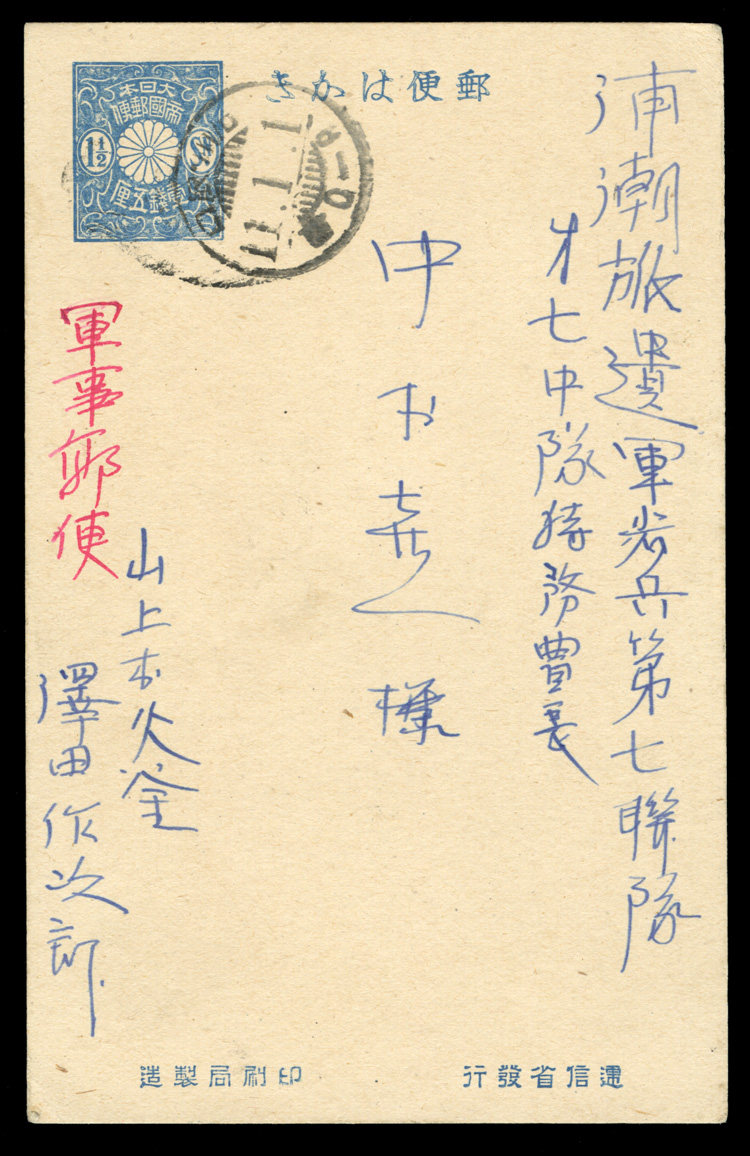 郵便はかき
大日本
帝國郵便
1½
1½ Sn
壹錢五厘
11.1.1
浦潮派遣軍歩兵第七聯隊
才七中隊特務曹長
中村 様
軍事郵便
山上村火釜
澤田作次郎
遞信省發行
印刷局製造